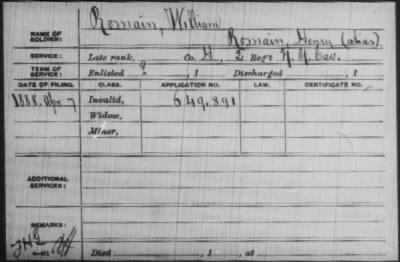 Romain, William
NAME OF SOLDIER:
Romain, Henry (alias)
SERVICE: Late rank, Co. H, 2 Reg't N.Y. Cav.
TERM OF SERVICE: Enlisted ?, 1 Discharged , 1
DATE OF FILING. CLASS. APPLICATION NO. LAW. CERTIFICATE NO.
1888. Apr 7 Invalid, 649,891
Widow,
Minor,
ADDITIONAL SERVICES:
REMARKS:
Died , 1 , at